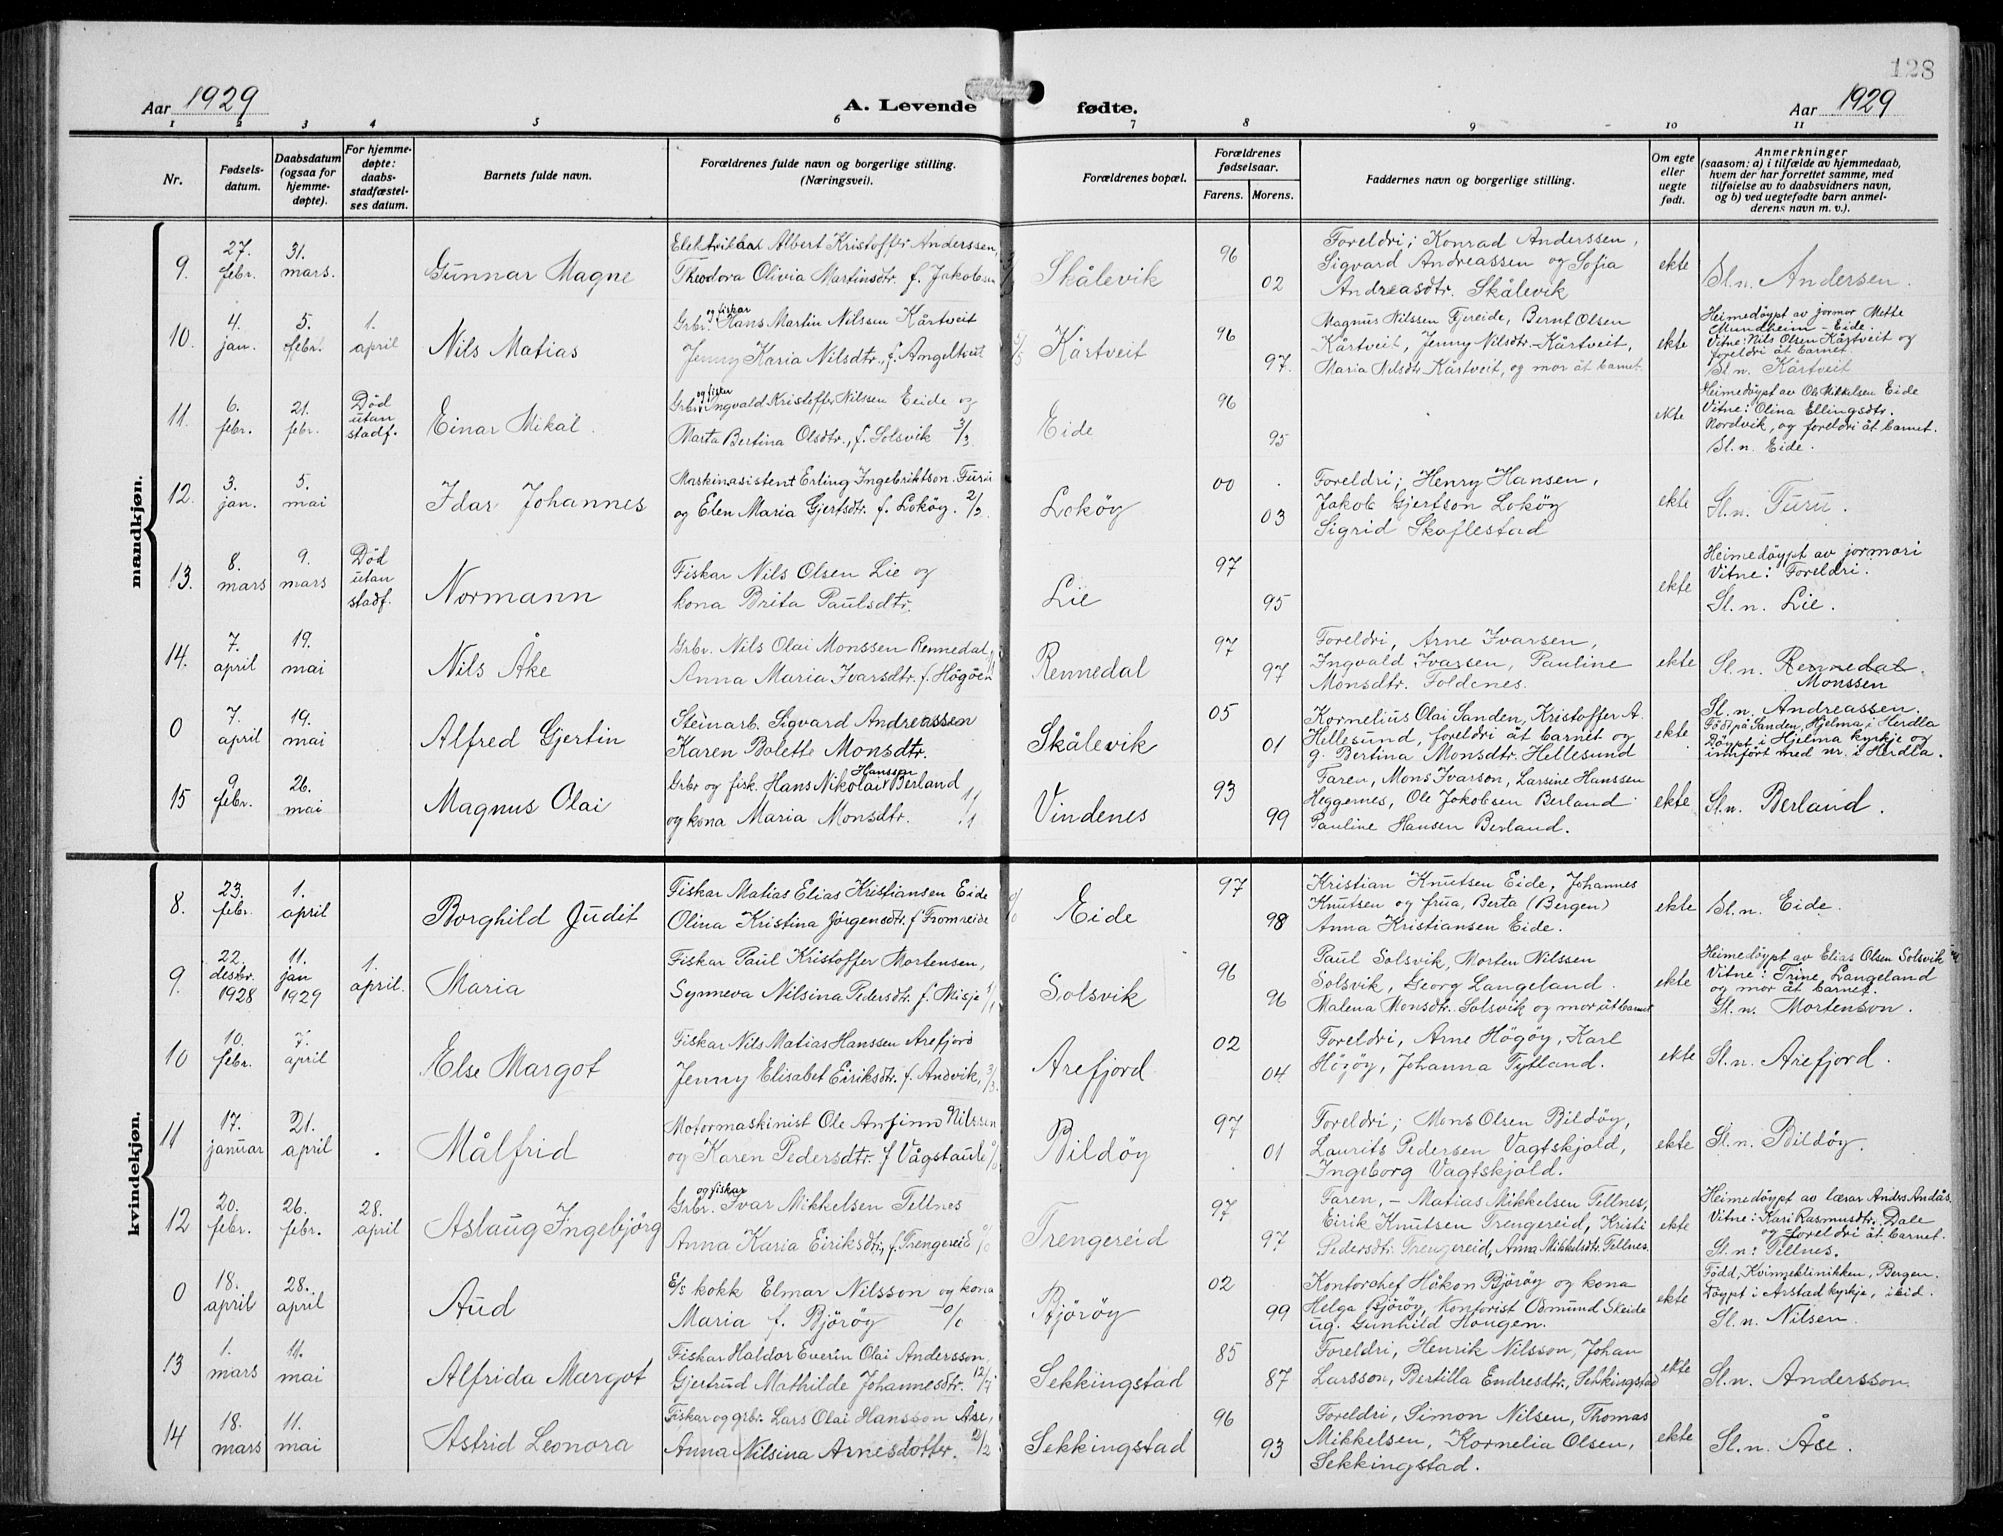 128
Aar 1929 A. Levende fødte. Aar 1929
1 2 3 4 5 6 7 8 9 10 11
Nr.
Fødsels-
datum.
Daabsdatum
(ogsaa for
hjemme-
døpte).
For hjemme-
døpte:
daabs-
stadfæstel-
ses datum.
Barnets fulde navn.
Forældrenes fulde navn og borgerlige stilling.
(Næringsvei).
Forældrenes bopæl.
Forældrenes
fødselsaar.
Farens. Morens.
Faddernes navn og borgerlige stilling.
Om egte
eller
uegte
født.
Anmerkninger
(saasom: a) i tilfælde av hjemmedaab,
hvem der har forrettet samme, med
tilføielse av to daabsvidners navn,
og b) ved uegtefødte barn anmel-
derens navn m. v.).
mandkjøn.
9
27.
febr.
31.
mars.
Gunnar Magne
Elektrikar Albert Kristoffer Anderssen,
Theodora Olivia Martinsdtr. f. Jakobsen
Skålevik
96
02
Foreldri; Konrad Anderssen,
Sigvard Andreassen og Sofia
Andreasdtr. Skålevik
ekte
Sl.n. Andersen.
10.
4.
jan.
5.
febr.
1.
april
Nils Matias
og fiskar
Grbr. Hans Martin Nilssen Kårtveit
Jenny Karia Nilsdtr., f. Angeltveit
5/5
Kårtveit
96
97.
Magnus Nilssen Fjereide, Bernt Olsen
Kårtveit, Jenny Nilsdtr. Kårtveit,
Maria Nilsdtr. Kårtveit, og mor åt barnet.
ekte
Heimedöypt av jormor Mette
Mundheim - Eide.
Vitne: Nils Olsen Kårtveit og
foreldri åt barnet.
Sl. n. Kårtveit
11.
6.
febr.
21.
febr.
Död
utan
stadf.
Einar Mikal.
og fiskar
Grbr. Ingvald Kristoffer Nilssen Eide og
Marta Bertina Olsdtr., f. Solsvik 3/3.
Eide
96
95
ekte
Heimedöypt av Ole Mikkelsen Eide
Vitne: Olina Ellingsdtr.
Nordvik, og foreldri åt barnet.
Sl. n. Eide.
12.
3.
jan.
5.
mai
Idar Johannes
Maskinasistent Erling Ingebriktson Furu
og Elen Maria Gjertsdtr. f. Loköy. 2/2.
Loköy
00
03
Foreldri; Henry Hansen,
Jakob Gjertson Loköy
Sigrid Skaflestad
ekte
Sl.n. Furu.
13.
8.
mars
9.
mars
Död
utan
stadf.
Normann
Fiskar Nils Olsen Lie og
kona Brita Paulsdtr.
Lie
97
95
ekte
Heimedöypt av jormori
Vitne: Foreldri.
Sl. n. Lie.
14.
7.
april
19.
mai
Nils Åke
Grbr. Nils Olai Monssen Rennedal
Anna Maria Ivarsdtr. f. Högöen
Rennedal
97
97
Foreldri, Arne Ivarsen,
Ingvald Ivarsen, Pauline
Monsdtr. Foldenes.
ekte
Sl.n. Rennedal.
Monssen
0
7.
april
19.
mai
Alfred Gjertin
Steinarb. Sigvard Andreassen
Karen Bolette Monsdtr.
Skålevik
05
01
Kornelius Olai Sanden, Kristoffer A.
Hellesund, foreldri åt barnet og
g. Bertina Monsdtr. Hellesund
ekte
Sl. n. Andreassen.
Födt på Sanden, Hjelma i Herdla
Döypt i Hjelma kyrkje og
innfört med nr. i Herdla.
15
9.
febr.
26.
mai
Magnus Olai
Hansen
Grbr og fisk. Hans Nikolai Berland
og kona Maria Monsdtr. 1/1
Vindenes
93
99
Faren, Mons Ivarson, Larsine Hanssen
Heggernes, Ole Jakobsen Berland
Pauline Hansen Berland.
ekte
Sl.n. Berland.
kvindekjøn.
8.
23.
febr.
1.
april
Borghild Judit
Fiskar Matias Elias Kristiansen Eide
Olina Kristina Jørgensdtr. f. Fromreide
Eide
97
98
Kristian Knutsen Eide, Johannes
Knutsen og frua, Berta (Bergen)
Anna Kristiansen Eide.
ekte
Sl.n. Eide.
9.
22.
desbr.
1928
11.
jan
1929
1.
april.
Maria
Fiskar Paul Kristoffer Mortensen,
Synneva Nilsina Pedersdtr. f. Misje 1/1
Solsvik
96
96
Paul Solsvik, Morten Nilssen
Solsvik, Georg Langeland.
Malena Monsdtr. Solsvik og mor åt barnet
ekte
Heimedöypt av Elias Olsen Solsvik
Vitne: Trine Langeland
og mor åt barnet.
Sl. n. Mortenson.
10
10.
febr.
7.
april
Else Margot
Fiskar Nils Matias Hanssen Arefjord
Jenny Elisabet Eiriksdtr. f. Andvik, 3/3.
Arefjord
02
04
Foreldri, Arne Högöy, Karl
Högöy, Johanna Tytland.
ekte
Sl.n. Arefjord.
11
17.
januar
21.
april
Målfrid
Motormaskinist Ole Anfinn Nilssen
og Karen Pedersdtr. f. Vågstaule 0/0
Bildöy
97
01
Foreldri; Mons Olsen Bildöy,
Laurits Pedersen Vagtskjold,
Ingeborg Vagtskjold.
ekte
Sl.n. Bildöy.
12
20.
febr.
26.
febr.
28.
april
Aslaug Ingebjörg
og fiskar
Grbr. Ivar Mikkelsen Tellnes
Anna Karia Eiriksdtr., f. Trengereid 0/0
Trengereid
97
97
Faren, - Matias Mikkelsen Tellnes,
Eirik Knutsen Trengereid, Kristi
Pedersdtr. Trengereid, Anna Mikkelsdtr. Tellnes.
ekte
Heimedöypt av lærar Anders Andås.
Vitne: Kari Rasmusdtr. Dale
og foreldri åt barnet.
Sl. n: Tellnes.
0
18.
april
28.
april
Aud
E/s kokk Elmar Nilsson og kona
Maria f. Björöy 0/0
Björöy
02
99
Kontorchef Håkon Björöy og kona
Helga Björöy, Kontorist Odmund Skeide
ug. Gunhild Haugen.
ekte
Född, Kvinneklinikken, Bergen.
Döypt i Årstad kyrkje, ibid.
Sl.n. Nilsen.
13
1.
mars
11.
mai
Alfrida Margot
Fiskar Haldor Everin Olai Andersson,
Gjertrud Mathilde Johannesdtr. 12/7
Sekkingstad
85
87
Foreldri, Henrik Nilsson, Johan
Larsson, Bertilla Endresdtr., Sekkingstad
ekte
Sl.n. Andersson.
14
18.
mars
11.
mai
Astrid Leonora
Fiskar og grbr. Lars Olai Hansson Åse,
Anna Nilsina Arnesdotter. 2/2
Sekkingstad
96
93
Foreldri, Simon Nilsen, Thomas
Mikkelsen, Kornelia Olsen,
Sekkingstad.
ekte
Sl.n. Åse.